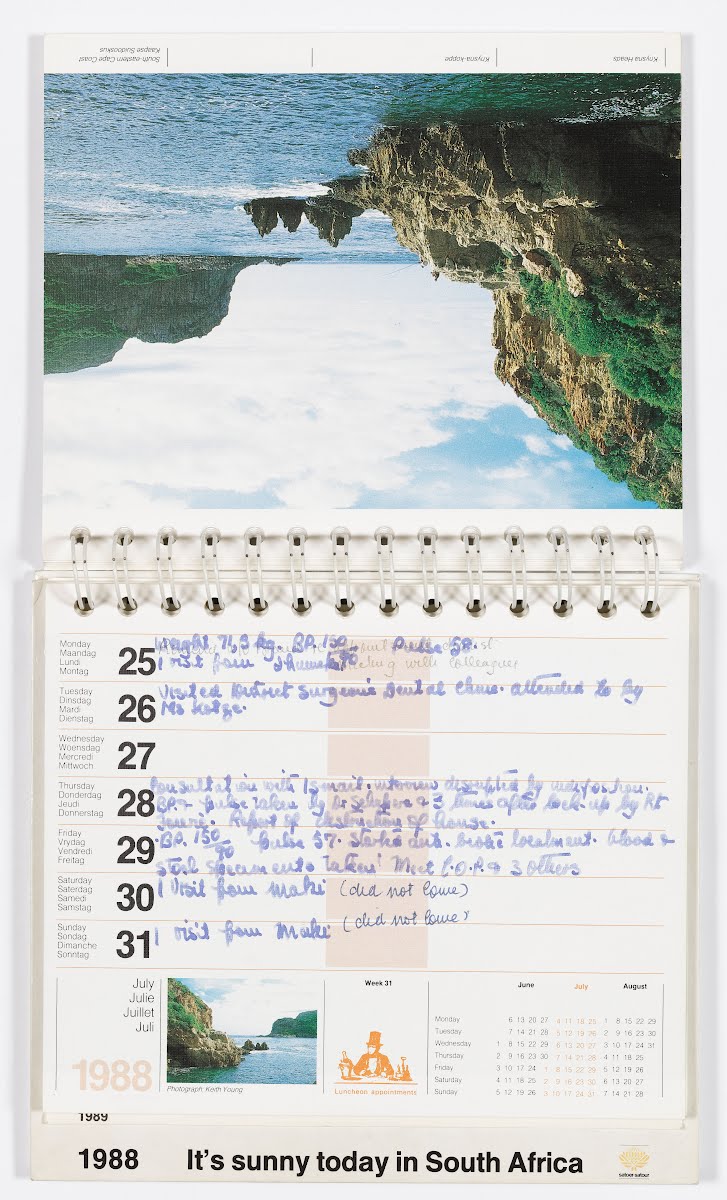 South-eastern Cape Coast
Kaapse Suidooskus
Knysna-koppe
Knysna Heads
Monday
Maandag
Lundi
Montag
25
Weight 71,3 kg. BP. 150/90 Pulse 58.
1 visit from
with colleagues
Tuesday
Dinsdag
Mardi
Dienstag
26
Visited District Surgeon's Dental Clinic. attended to by
Ms Kotze.
Wednesday
Woensdag
Mercredi
Mittwoch
27
Thursday
Donderdag
Jeudi
Donnerstag
28
Consultation with Ismail. interview disrupted by
BP & pulse taken by Dr & 3 times after lock-up by
Report of destruction of house.
Friday
Vrydag
Vendredi
Freitag
29
BP. 150/90 pulse 57. Started anti. treatment. blood &
stool specimens taken. Meet C.O.P. & 3 others
Saturday
Saterdag
Samedi
Samstag
30
1 Visit from Maki (did not come)
Sunday
Sondag
Dimanche
Sonntag
31
1 visit from Maki (did not come)
July
Julie
Juillet
Juli
1988
Photograph: Keith Young
Week 31
Luncheon appointments
June July August
Monday 6 13 20 27 4 11 18 25 1 8 15 22 29
Tuesday 7 14 21 28 5 12 19 26 2 9 16 23 30
Wednesday 1 8 15 22 29 6 13 20 27 3 10 17 24 31
Thursday 2 9 16 23 30 7 14 21 28 4 11 18 25
Friday 3 10 17 24 1 8 15 22 29 5 12 19 26
Saturday 4 11 18 25 2 9 16 23 30 6 13 20 27
Sunday 5 12 19 26 3 10 17 24 31 7 14 21 28
1989
1988 It's sunny today in South Africa
satoer satour